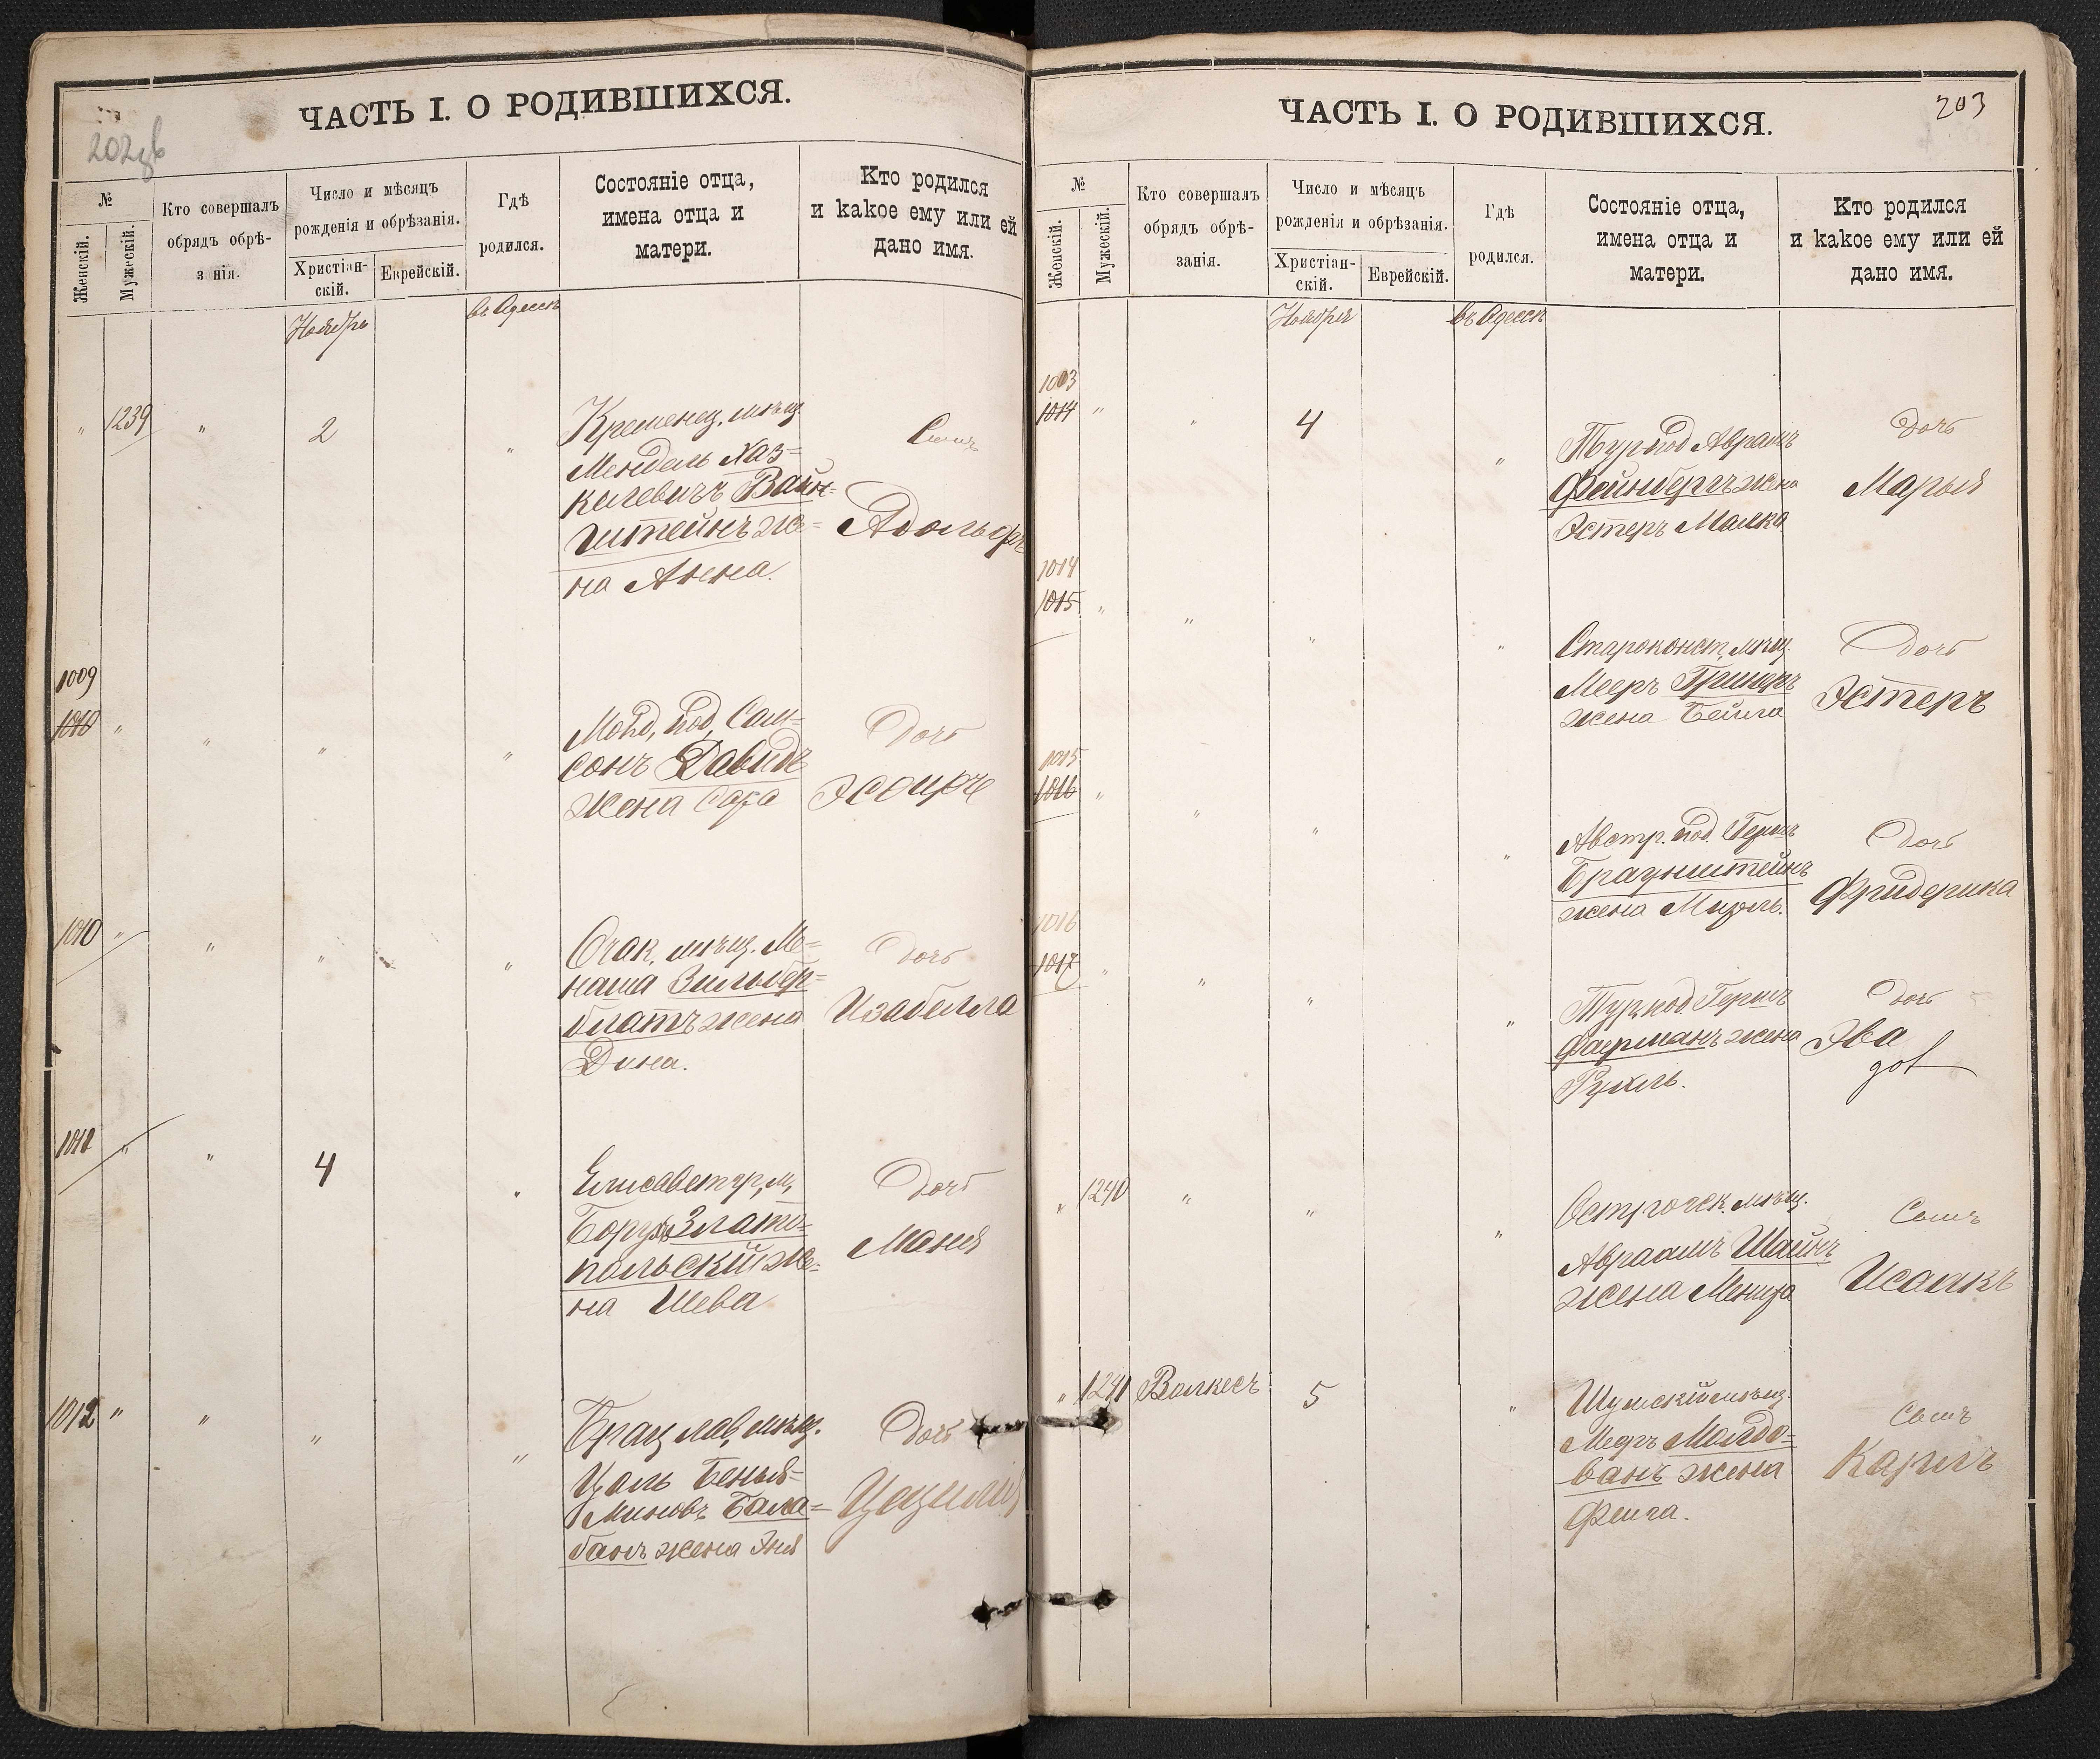 ЧАСТЬ I. О РОДИВШИХСЯ.
202 об
№
Женскій.
Мужескій.
Кто совершалъ
обрядъ обрѣ-
з нія.
Число и мѣсяцъ
рожденія и обрѣзанія.
Христіан-
скій.
Еврейскій.
Гдѣ
родился.
Состояніе отца,
имена отца и
матери.
Кто родился
и какое ему или ей
дано имя.
Ноябрь
въ Одессѣ
" 1239 " 2 "
Кременец. мѣщ.
Мендель Хаз-
килевичъ Вайн-
штейнъ же-
на Анна.
Сынъ
Адольфъ
1009
1010 " " " "
Молд. под. Сам-
сонъ Давидъ
жена Сара
Дочь
Эсѳирь
1010 " " " "
Очак. мѣщ. Ме-
наша Зильбер-
блатъ жена
Дина.
Дочь
Изабелла
1011 " " 4 "
Елисаветгр. м.
Борухъ Злато-
польскій же-
на Шева
Дочь
Маня
1012 " " " "
Брацлав. мѣщ.
Цаль Бенья-
миновъ Бала-
банъ жена Эня
Дочь
Цецилія
ЧАСТЬ I. О РОДИВШИХСЯ.
203
№
Женскій.
Мужескій.
Кто совершалъ
обрядъ обрѣ-
занія.
Число и мѣсяцъ
рожденія и обрѣзанія.
Христіан-
скій.
Еврейскій.
Гдѣ
родился.
Состояніе отца,
имена отца и
матери.
Кто родился
и какое ему или ей
дано имя.
Ноября
въ Одессѣ
1003
1014 " " 4 "
Тур. под Аврамъ
Фейнбергъ жена
Эстеръ Малка
Дочь
Марья
1014
1015 " " " "
Староконст. мѣщ.
Мееръ
жена Бейла
Дочь
Эстеръ
1015
1016 " " " "
Австр. под. Гершъ
Браунштейнъ
жена
Дочь
Фридерика
1016
1017 " " " "
Тур. под. Гершъ
Фаерманъ жена
Рухль.
Дочь
Эва
" 1240 " " "
мѣщ.
Авраамъ Шайнъ
жена
Сынъ
Исаакъ
" 1241 Валкесъ 5 "
Шумскій мѣщ.
Мееръ Молдо-
ванъ жена
Фейга.
Сынъ
Карлъ